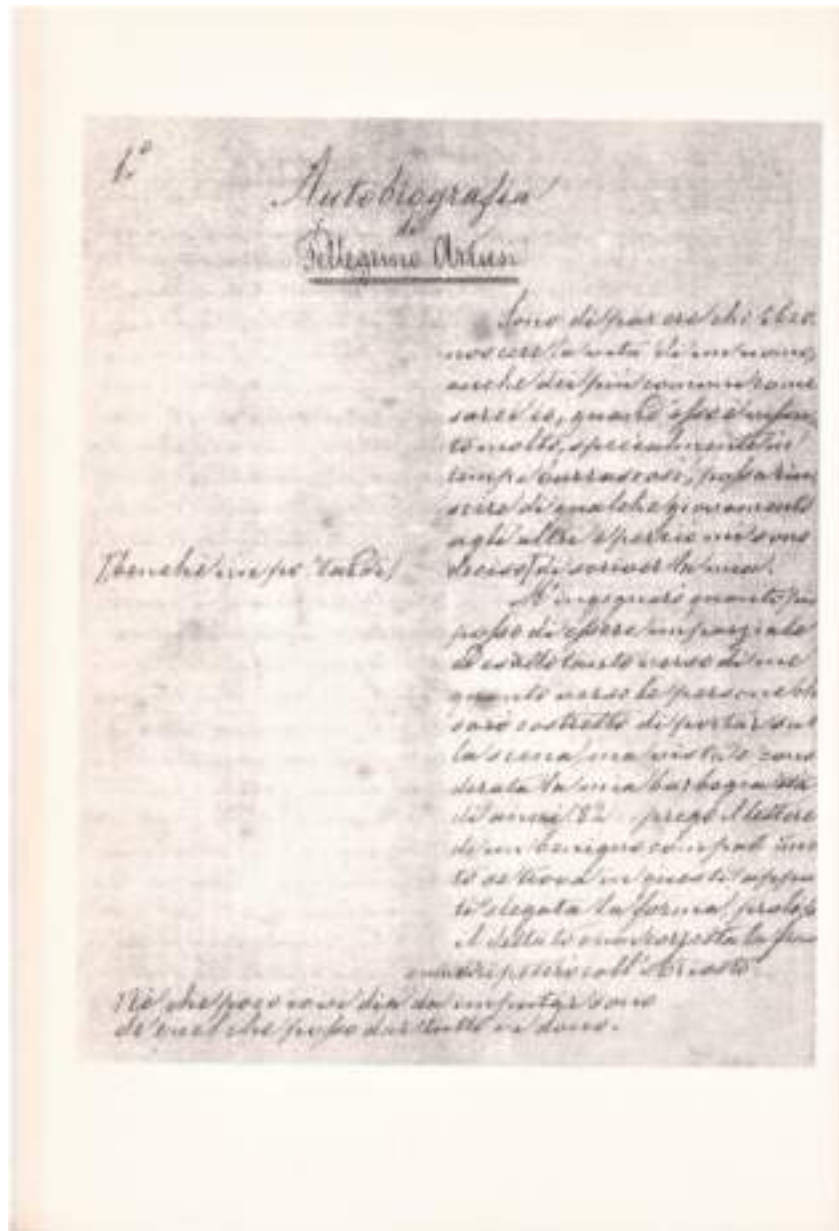 1.°
Autobiografia
di
Pellegrino Artusi
Sono di parere che il co-
noscere la vita di un uomo,
anche dei più comuni come
sarei io, quand'esso è vissu-
to molto, specialmente in
tempi burrascosi, possa rie-
scire di qualche giovamento
agli altri e perciò mi sono
[benchè un po' tardi]
deciso di scriver la mia.
M'ingegnerò quanto più
posso di essere imparziale
ed esatto tanto verso di me
quanto verso le persone ch
sarò costretto di portar sul
la scena, ma vista e consi
derata la mia barbogia età
di anni 82 prego il lettore
di un benigno compatimen
to se trova in questi appun
ti slegata la forma, proliss
il dettato non corretta la frase
ripeterò coll'Ariosto
Nè che poco io vi dia da imputar sono
chè quel che posso dar tutto vi dono.